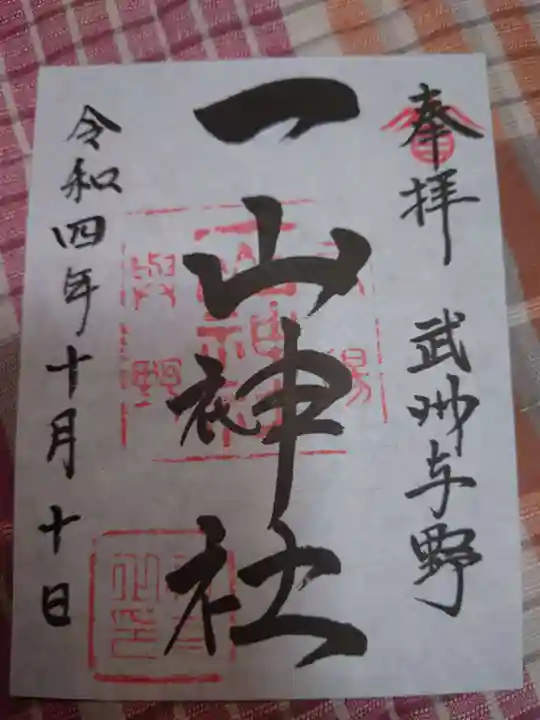 奉拝 武州与野
一山神社
令和四年十月十日